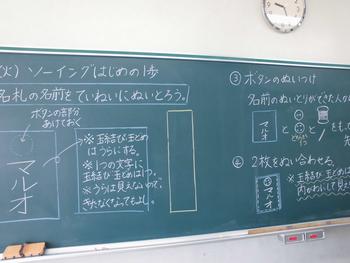 (火) ソーイングはじめの1歩
名札の名前をていねいにぬいとろう。
ボタンの部分
あけておく
マルオ
※玉結び・玉どめ
はうらにする。
※1つの文字に
玉結び・玉どめは1つ。
※うらは見えないので、
きたなくなってもよし。
③ ボタンのぬいつけ
名前のぬいとりができた人から
マルオ
と
と
をもった
④ 2枚をぬい合わせる。
マルオ
※玉結び・玉どめ
内がわにして見え